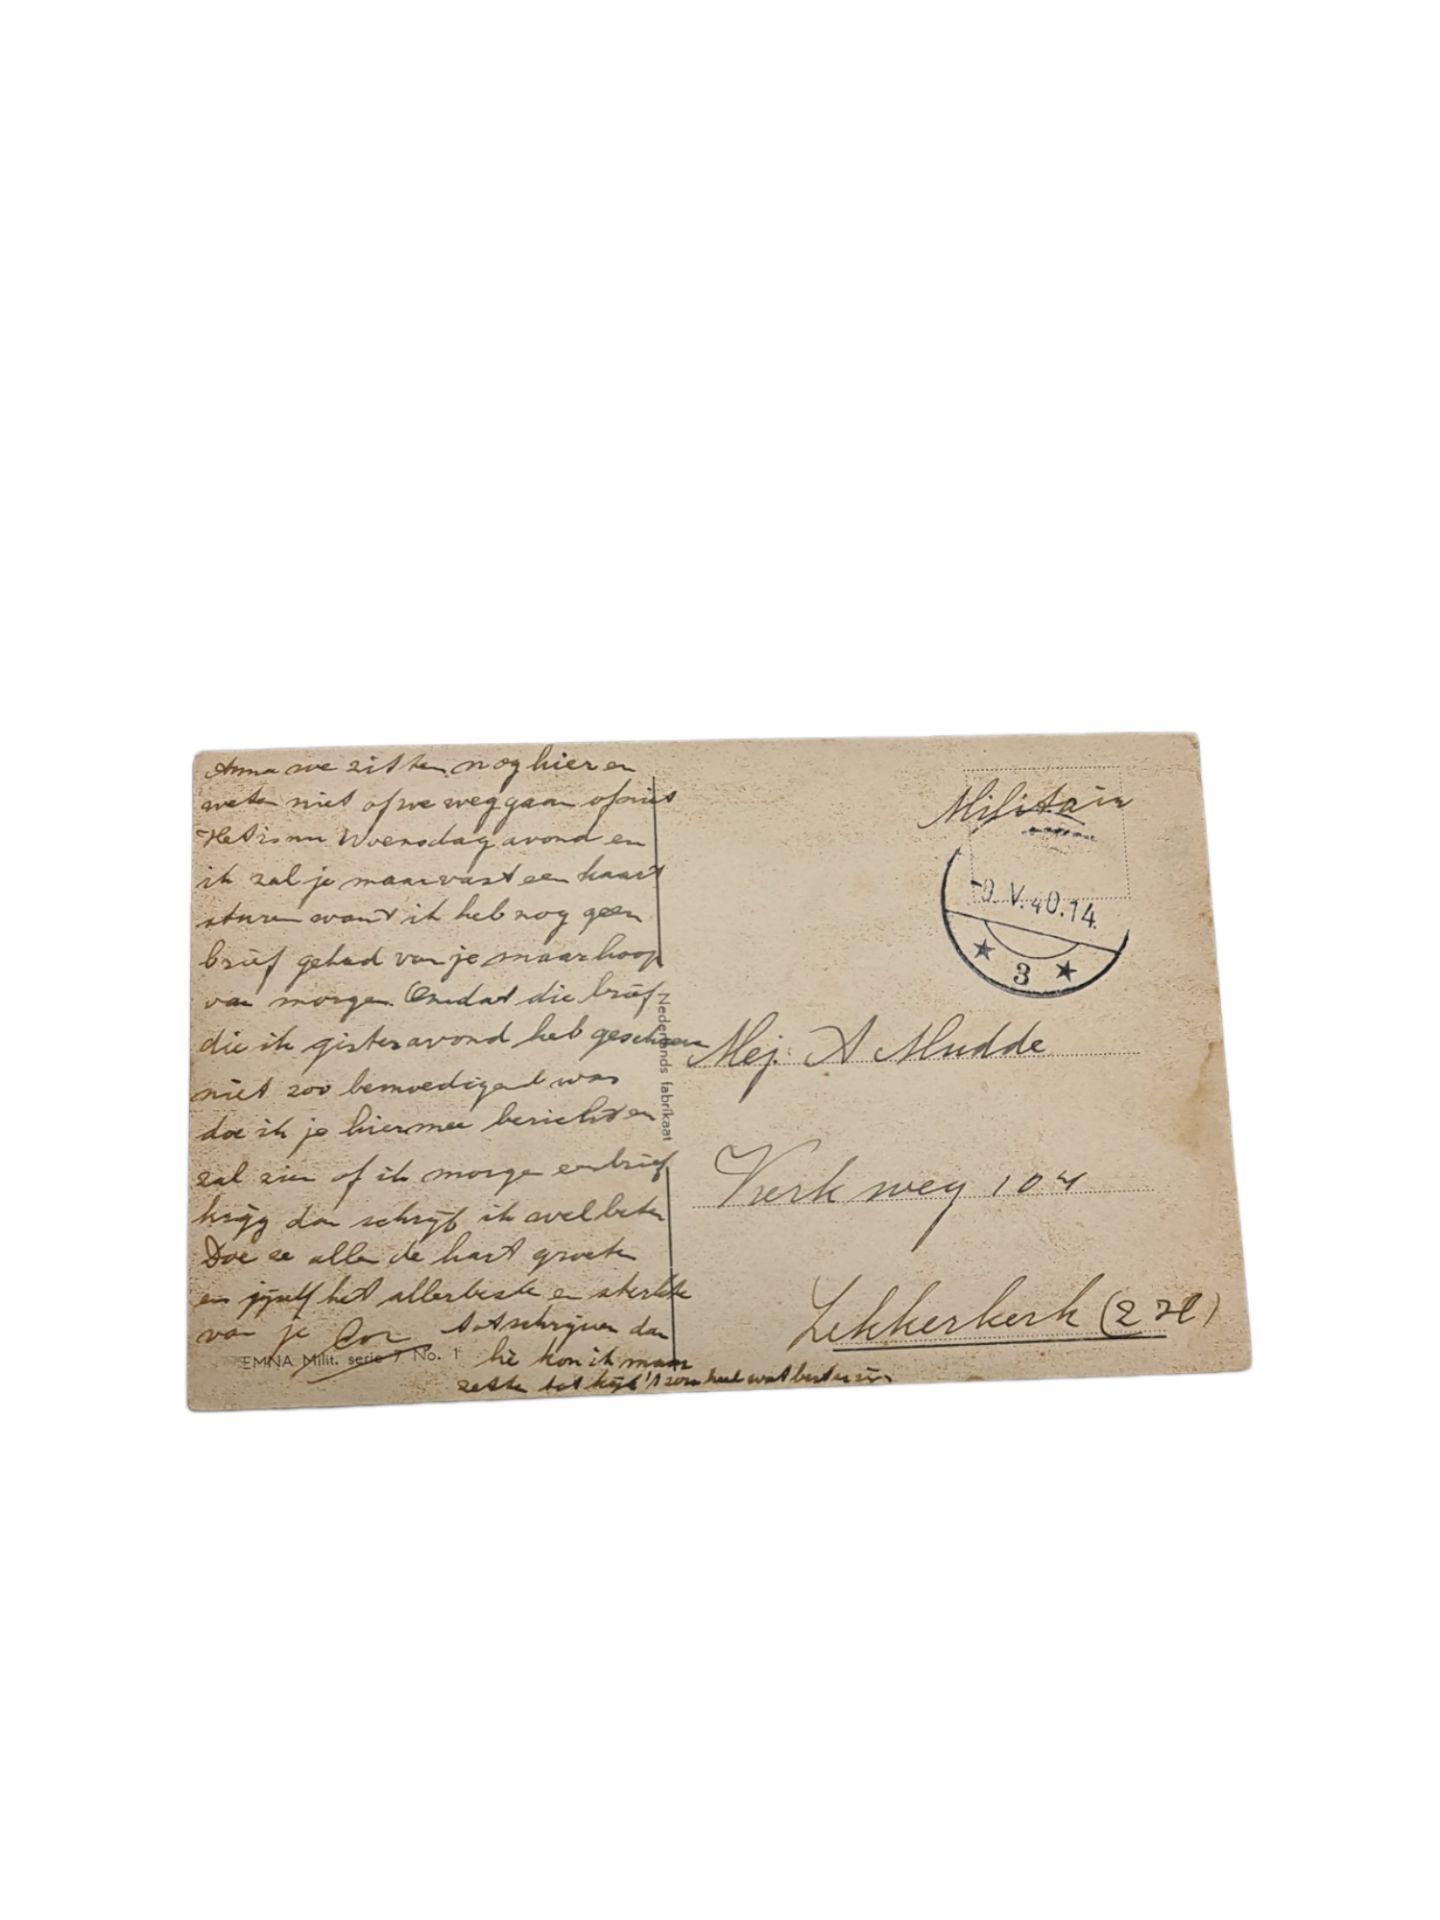 Anna we zitten nog hier en
weten niet of we weg gaan of niet
Het is nu Woensdag avond en
ik zal je maar vast een kaart
sturen want ik heb nog geen
brief gehad van je maar hoop
van morgen. Omdat die brief
die ik gisteravond heb geschreven
niet zoo bemoedigend was
doe ik je hiermee bericht en
zal zien of ik morgen een brief
krijg dan schrijf ik wel beter
Doe ze allen de hart groeten
en jijzelf het allerbeste en sterkte
van je Cor tot schrijvens dan
hè kon ik maar
zeggen tot kijk 't zou heel wat beter zijn
EMNA Milit. serie 7 No. 1
Nederlands fabrikaat
Militair
-9.V.40.14
3
Mej. A Mudde
Kerkweg 104
Lekkerkerk (Z H)